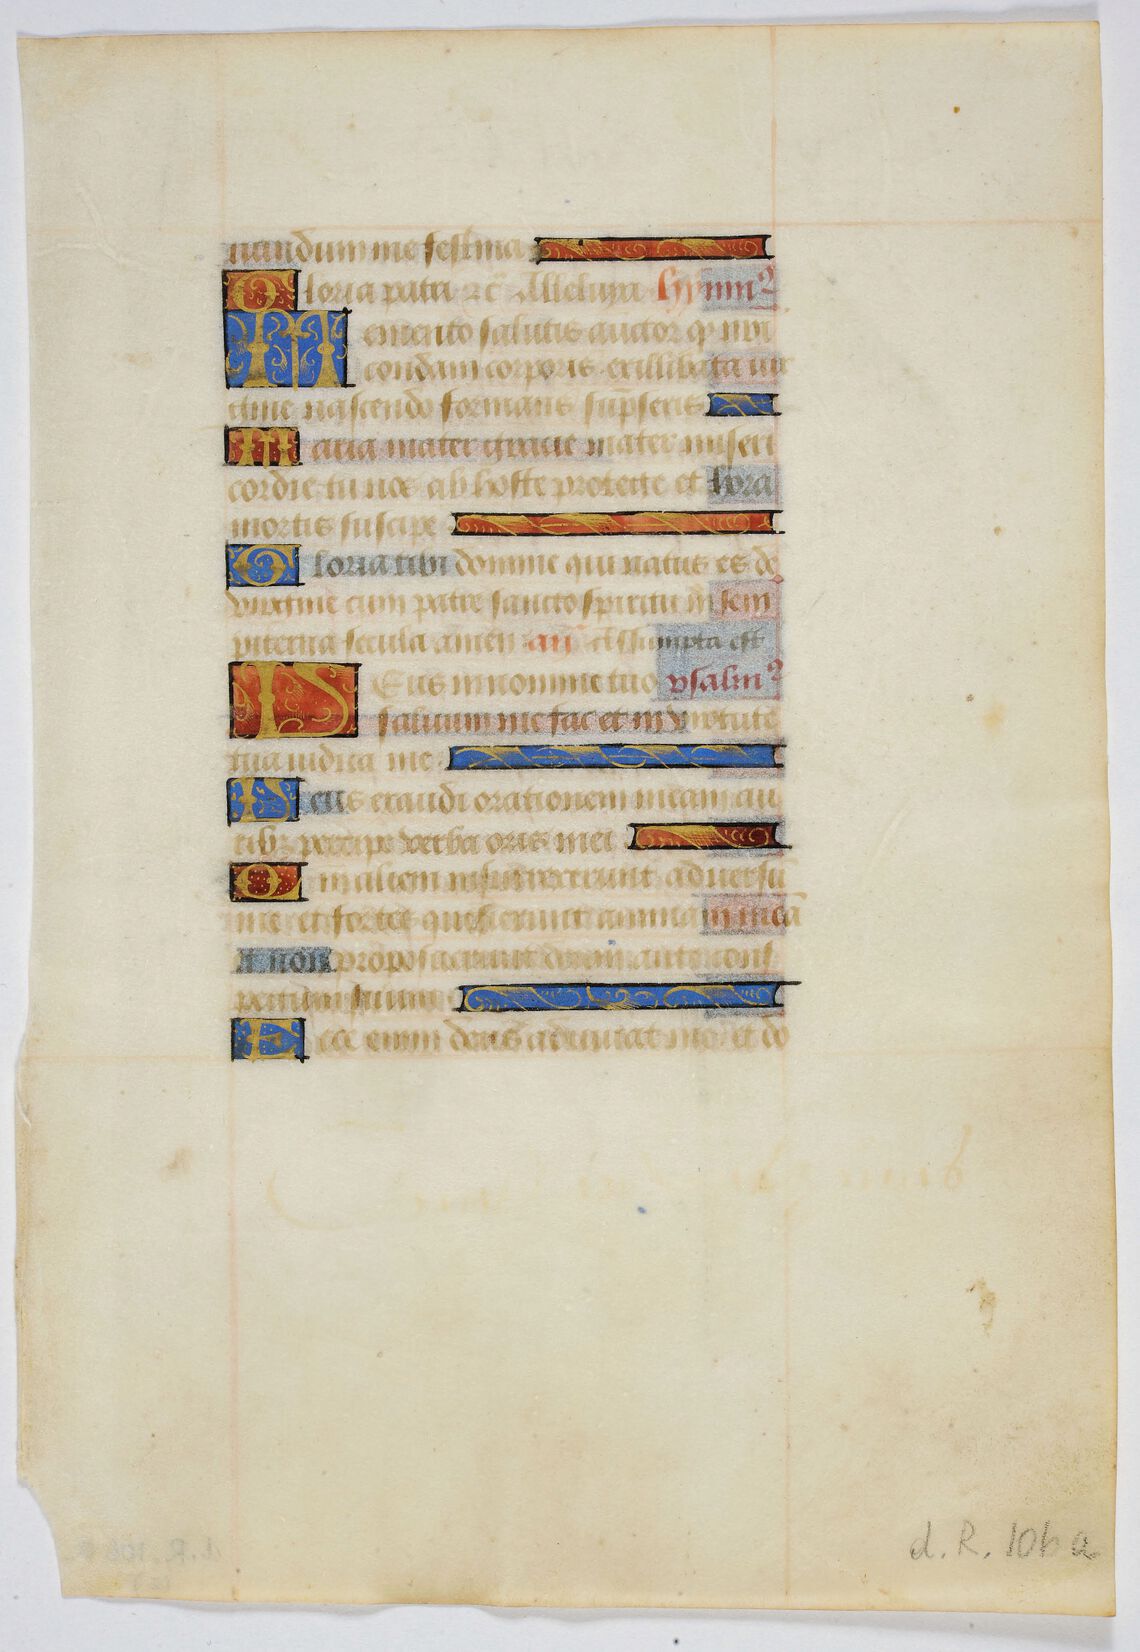 uandum me festina
Gloria patri &c̃ Alleluya Hỹmn⁹
Memento salutis auctor q̃ nr̃i
condam corporis ex illibata uir
gine nascendo formam sũpseris
Maria mater gracie mater miseri
cordie tu nos ab hoste protege et hora
mortis suscipe
Gloria tibi domine qui natus es de
virgine cum patre sancto spiritu in sem
piterna secula amen añ Assumpta est
DEus in nomine tuo psalm⁹
saluum me fac et in virtute
tua iudica me
Deus exaudi orationem meam au
ribꝰ percipe verba oris mei
Qm alieni insurrexerunt aduersũ
me et fortes quesierunt animam meã
et non proposuerunt deum ante cons
pectum suum
Ecce enim deus adiuuat me et do
d. R. 106 a